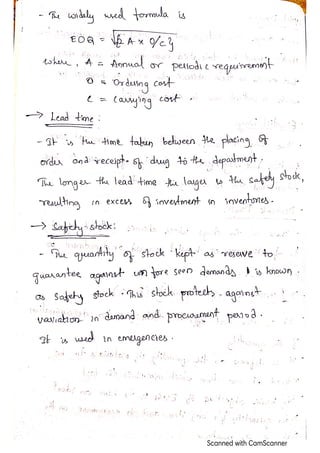 - The widely used formula is
EOQ = √{2 A x O/c}
where, A = Annual or periodic requirement
O = Ordering cost
C = Carrying cost.
→ Lead time:
- It is the time taken between the placing of
order and receipt of drug to the department.
The longer the lead time the larger is the safety stock,
resulting in excess of investment in inventories.
→ Safety stock:
- The quantity of stock kept as reserve to
guarantee against unfore seen demands is known
as Safety stock. This stock protects against
variation in demand and procurement period.
It is used in emergencies.
Scanned with CamScanner